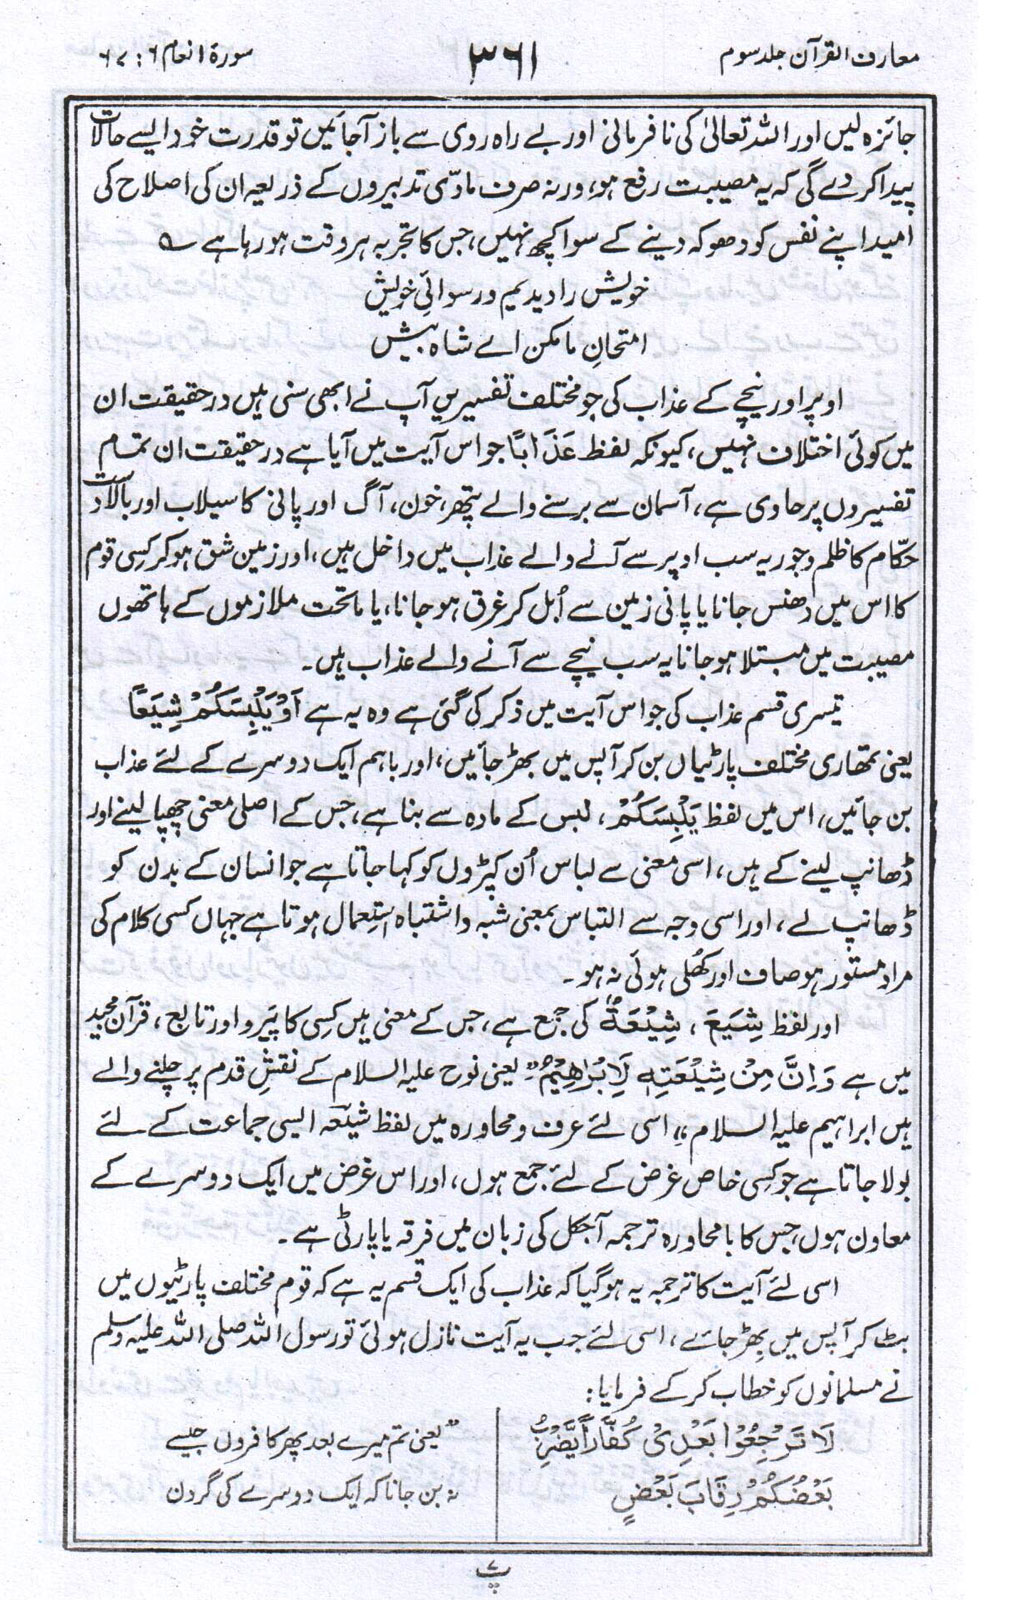 معارف القرآن جلد سوم
۳۶۱
سورۃ انعام ۶ : ۶۷
جائزہ لیں اور اللہ تعالیٰ کی نافرمانی اور بے راہ روی سے باز آجائیں تو قدرت خود ایسے حالات
پیدا کر دے گی کہ یہ مصیبت رفع ہو، ورنہ صرف مادّی تدبیروں کے ذریعہ ان کی اصلاح کی
امید اپنے نفس کو دھوکہ دینے کے سوا کچھ نہیں، جس کا تجربہ ہر وقت ہو رہا ہے ؎
خویش را دیدیم و رسوائیِ خویش
امتحانِ ما مکن اے شاہ بیش
اوپر اور نیچے کے عذاب کی جو مختلف تفسیریں آپ نے ابھی سنی ہیں درحقیقت ان
میں کوئی اختلاف نہیں، کیونکہ لفظ عَذَابًا جو اس آیت میں آیا ہے درحقیقت ان تمام
تفسیروں پر حاوی ہے، آسمان سے برسنے والے پتھر، خون، آگ اور پانی کا سیلاب اور بالادست
حکّام کا ظلم و جور یہ سب اوپر سے آنے والے عذاب میں داخل ہیں، اور زمین شق ہو کر کسی قوم
کا اس میں دھنس جانا یا پانی زمین سے اُبل کر غرق ہو جانا، یا ماتحت ملازموں کے ہاتھوں
مصیبت میں مبتلا ہو جانا یہ سب نیچے سے آنے والے عذاب ہیں۔
تیسری قسم عذاب کی جو اس آیت میں ذکر کی گئی ہے وہ یہ ہے اَوْ یَلْبِسَکُمْ شِیَعًا
یعنی تمھاری مختلف پارٹیاں بن کر آپس میں بھڑ جائیں، اور باہم ایک دوسرے کے لئے عذاب
بن جائیں، اس میں لفظ یَلْبِسَکُمْ، لبس کے مادہ سے بنا ہے، جس کے اصلی معنی چھپا لینے اور
ڈھانپ لینے کے ہیں، اسی معنی سے لباس اُن کپڑوں کو کہا جاتا ہے جو انسان کے بدن کو
ڈھانپ لے، اور اسی وجہ سے التباس بمعنی شبہ و اشتباہ استعمال ہوتا ہے جہاں کسی کلام کی
مراد مستور ہو صاف اور کھُلی ہوئی نہ ہو۔
اور لفظ شِیَعَ، شِیْعَۃٌ کی جمع ہے، جس کے معنی ہیں کسی کا پَیرو اور تابع، قرآن مجید
میں ہے وَاِنَّ مِنْ شِیْعَتِہٖ لَاِبْرٰھِیْمُ” یعنی نوح علیہ السلام کے نقشِ قدم پر چلنے والے
ہیں ابراہیم علیہ السلام، اسی لئے عرف و محاورہ میں لفظ شیعہ ایسی جماعت کے لئے
بولا جاتا ہے جو کسی خاص غرض کے لئے جمع ہوں، اور اس غرض میں ایک دوسرے کے
معاون ہوں، جس کا بامحاورہ ترجمہ آجکل کی زبان میں فرقہ یا پارٹی ہے۔
اسی لئے آیت کا ترجمہ یہ ہو گیا کہ عذاب کی ایک قسم یہ ہے کہ قوم مختلف پارٹیوں میں
بٹ کر آپس میں بھِڑ جائے، اسی لئے جب یہ آیت نازل ہوئی تو رسول اللہ صلی اللہ علیہ وسلم
نے مسلمانوں کو خطاب کر کے فرمایا:
لَا تَرْجِعُوْا بَعْدِیْ کُفَّارًا یَّضْرِبُ
بَعْضُکُمْ رِقَابَ بَعْضٍ
”یعنی تم میرے بعد پھر کافروں جیسے
نہ بن جانا کہ ایک دوسرے کی گردن
پ ۷